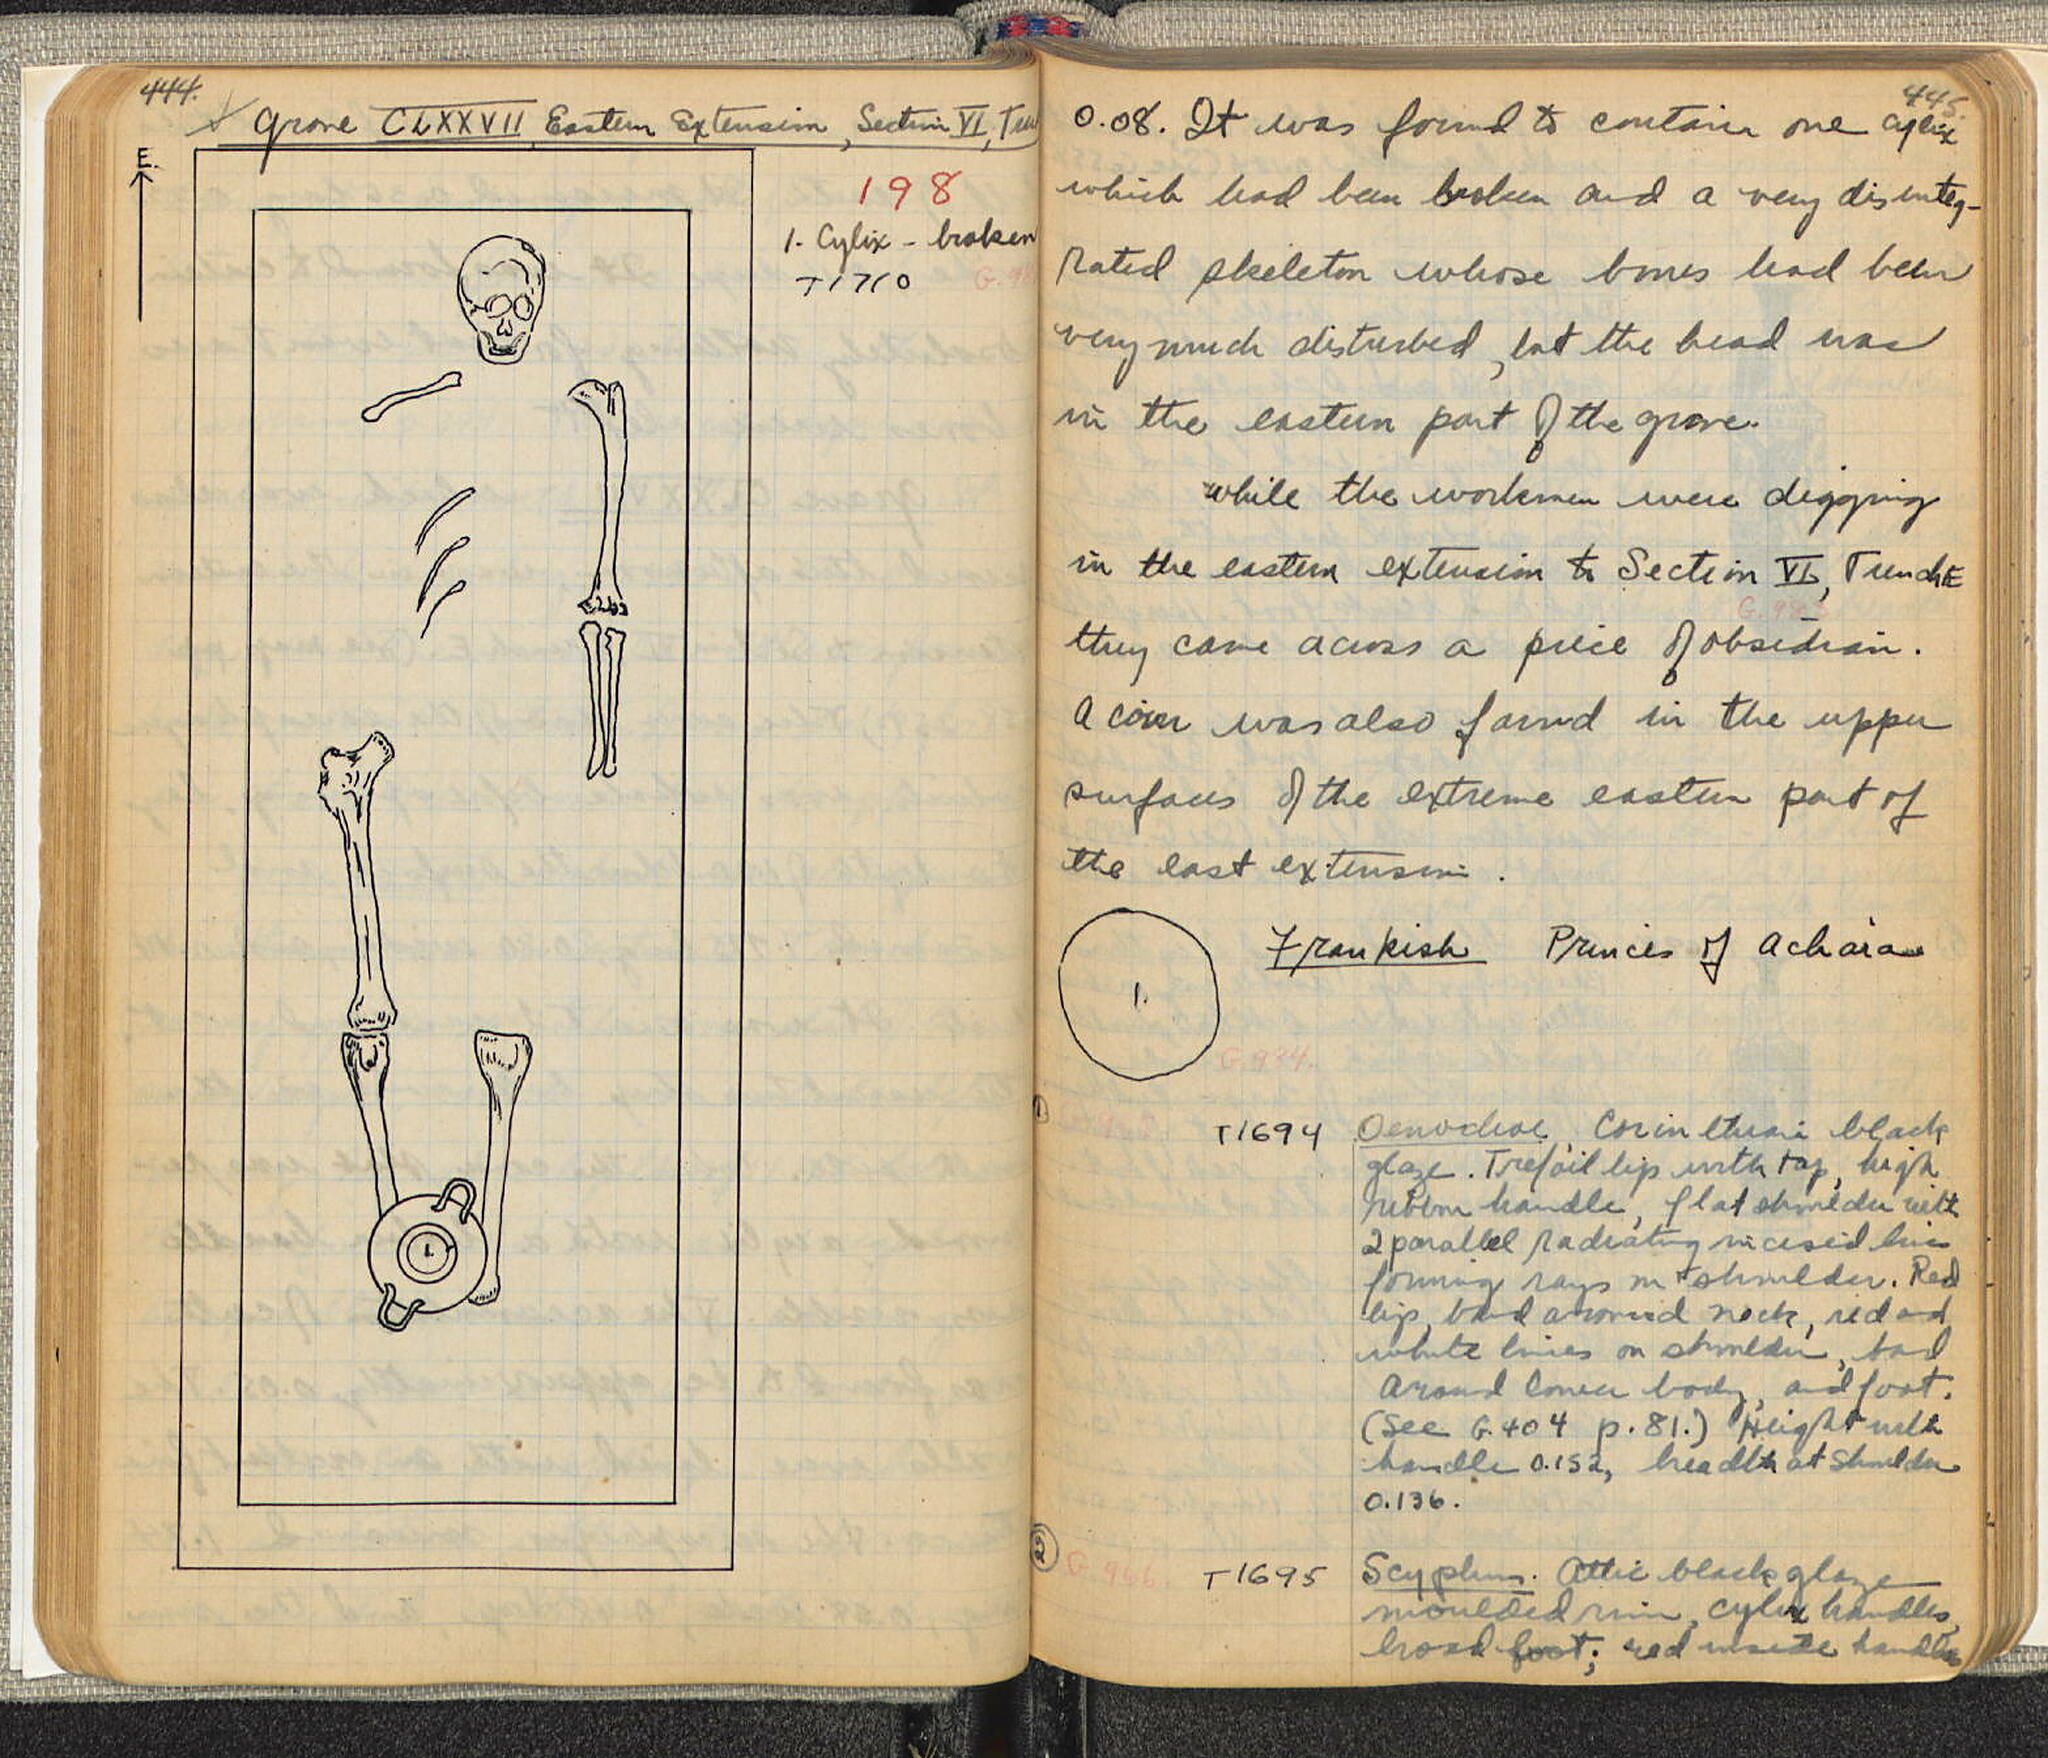 444.
Grave CLXXVII Eastern Extension, Section VI,
E.
198
1. Cylix - broken
T1710
1.
445.
0.08. It was found to contain one cylix
which had been broken and a very disinteg-
rated skeleton whose bones had been
very much disturbed, but the head was
in the eastern part of the grave.
While the workmen were digging
in the eastern extension to Section VI, Trench E
they came across a piece of obsidian.
A coin was also found in the upper
surfaces of the extreme eastern part of
the east extension.
1. Frankish Princes of Achaia
G.934.
1
T1694 Oenochoe, Corinthian black
glaze. Trefoil lip with top, high
ribbon handle, flat shoulder with
2 parallel radiating incised lines
forming rays on shoulder. Red
lip, band around neck, red and
white lines on shoulder, band
around lower body, and foot.
(See G.404 p.81.) Height with
handle 0.152, breadth at shoulder
0.136.
2 G.966. T1695 Scyphus. Attic black glaze
moulded rim, cylix handles,
broad foot; red inside handles